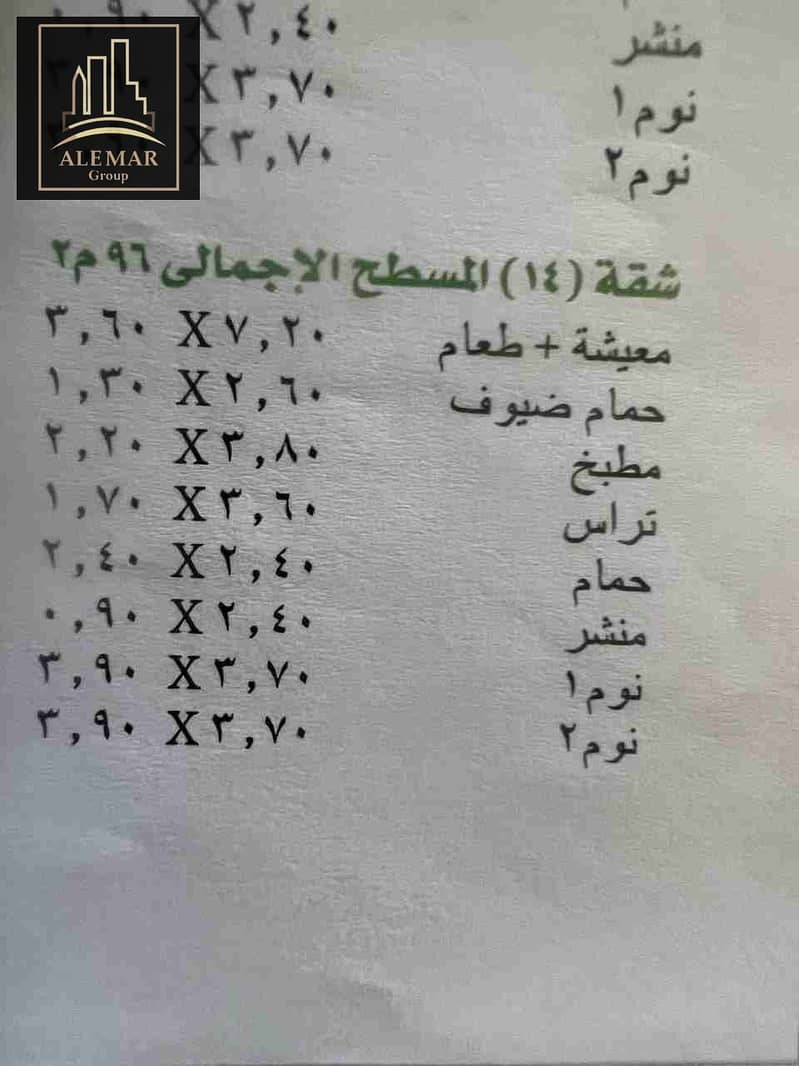 ALEMAR
Group
منشر ٢,٤٠ X
نوم١ ٣,٧٠ X
نوم٢ ٣,٧٠ X
شقة (١٤) المسطح الإجمالى ٩٦ م٢
معيشة + طعام ٧,٢٠ X ٣,٦٠
حمام ضيوف ٢,٦٠ X ١,٣٠
مطبخ ٣,٨٠ X ٢,٢٠
تراس ٣,٦٠ X ١,٧٠
حمام ٢,٤٠ X ٢,٤٠
منشر ٢,٤٠ X ٠,٩٠
نوم١ ٣,٧٠ X ٣,٩٠
نوم٢ ٣,٧٠ X ٣,٩٠